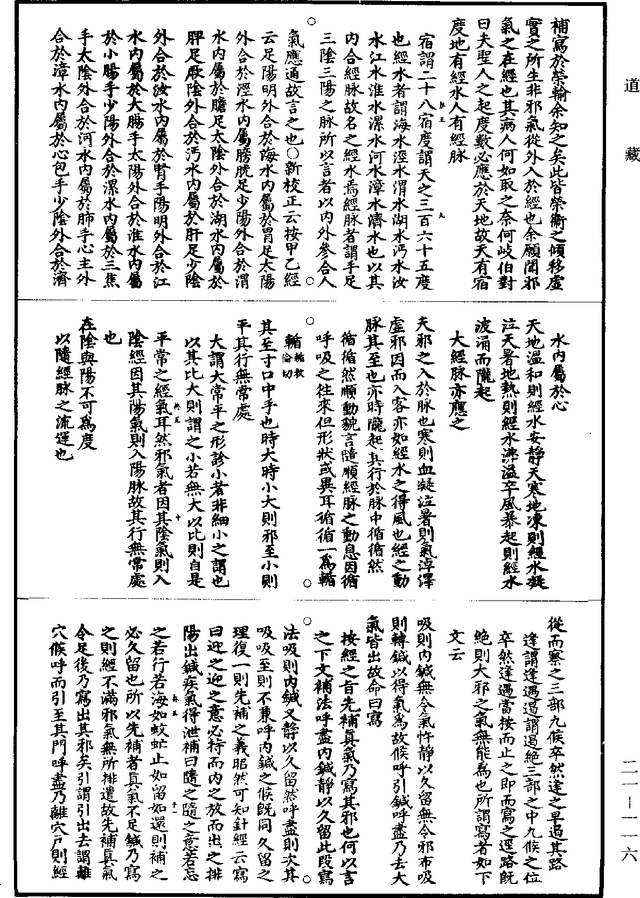 道藏
補寫於滎輸余知之矣此皆榮衛之傾移虛
實之所生非邪氣從外入於經也余願聞邪
氣之在經也其病人何如取之奈何岐伯對
曰夫聖人之起度數必應於天地故天有宿
度地有經水人有經脉
宿謂二十八宿度謂天之三百六十五度
也經水者謂海水涇水渭水湖水沔水汝
水江水淮水漯水河水漳水濟水也以其
內合經脉故名之經水焉經脉者謂手足
三陰三陽之脉所以言者以內外參合人
氣應通故言之也○新校正云按甲乙經
云足陽明外合於海水內屬於胃足太陽
外合於涇水內屬膀胱足少陽外合於渭
水內屬於膽足太陰外合於湖水內屬於
脾足厥陰外合於沔水內屬於肝足少陰
外合於汝水內屬於腎手陽明外合於江
水內屬於大腸手太陽外合於淮水內屬
於小腸手少陽外合於漯水內屬於三焦
手太陰外合於河水內屬於肺手心主外
合於漳水內屬於心包手少陰外合於濟
水內屬於心
天地溫和則經水安靜天寒地凍則經水凝
泣天暑地熱則經水沸溢卒風暴起則經水
波涌而隴起
大經脉亦應之
夫邪之入於脉也寒則血凝泣暑則氣淖澤
虛邪因而入客亦如經水之得風也經之動
脉其至也亦時隴起其行於脉中循循然
循循然順動貌言隨順經脉之動息因循
呼吸之往來但形狀或異耳循循一為輴
輴輴敕倫切
其至寸口中手也時大時小大則邪至小則
平其行無常處
大謂大常平之形診小者非細小之謂也
以其比大則謂之小若無大以比則自是
平常之經氣耳然邪氣者因其陰氣則入
陰經因其陽氣則入陽脉故其行無常處
也
在陰與陽不可為度
以隨經脉之流運也
從而察之三部九候卒然逢之早遏其路
逢謂逢遇遏謂遏絕三部之中九候之位
卒然逢遇當按而止之即而寫之逕路既
絕則大邪之氣無能為也所謂寫者如下
文云
吸則內鍼無令氣忤靜以久留無令邪布吸
則轉鍼以得氣為故候呼引鍼呼盡乃去大
氣皆出故命曰寫
按經之首先補真氣乃寫其邪也何以言
之下文補法呼盡內鍼靜以久留此段寫
法吸則內鍼又靜以久留然呼盡則次其
吸吸至則不兼呼內鍼之候既同久留之
理復一則先補之義昭然可知針經云寫
曰迎之迎之意必持而內之放而出之排
陽出鍼疾氣得泄補曰隨之隨之意若忘
之若行若海如蚊虻止如留如還則補之
必久留也所以先補者真氣不足鍼乃寫
之則經不滿邪氣無所排遣故先補真氣
令足後乃寫出其邪矣引謂引出去謂離
穴候呼而引至其門呼盡乃離穴戶則經
二一—一一六